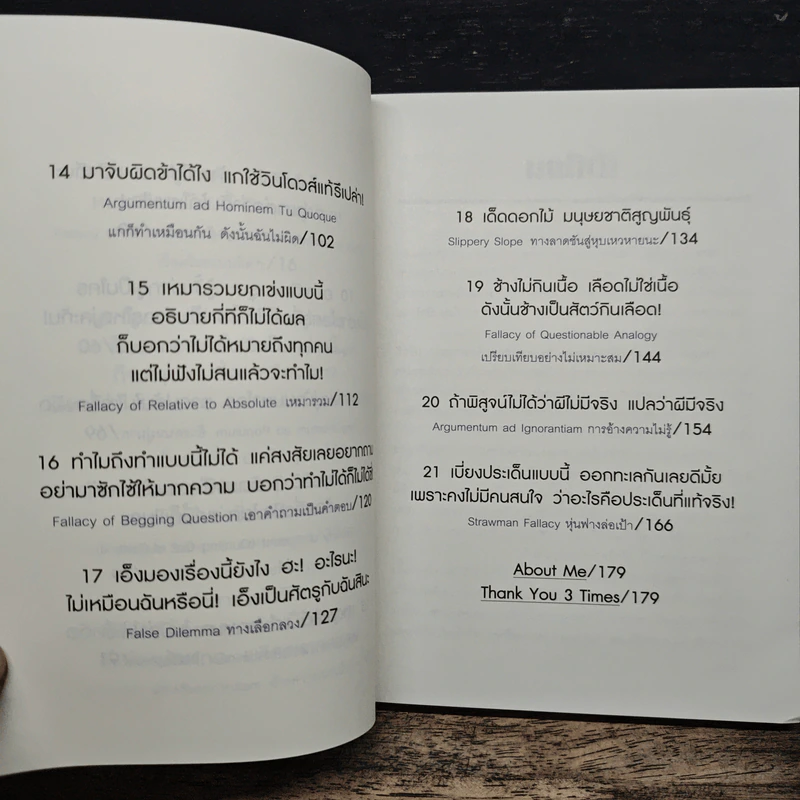 14 มาจับผิดข้าได้ไง แกใช้วินโดวส์แท้รึเปล่า!
Argumentum ad Hominem Tu Quoque
แกก็ทำเหมือนกัน ดังนั้นฉันไม่ผิด/102
15 เหมารวมยกเข่งแบบนี้
อธิบายกี่ทีก็ไม่ได้ผล
ก็บอกว่าไม่ได้หมายถึงทุกคน
แต่ไม่ฟังไม่สนแล้วจะทำไม!
Fallacy of Relative to Absolute เหมารวม/112
16 ทำไมถึงทำแบบนี้ไม่ได้ แค่สงสัยเลยอยากถาม
อย่ามาซักไซ้ให้มากความ บอกว่าทำไม่ได้ก็ไม่ได้
Fallacy of Begging Question เอาคำถามเป็นคำตอบ/120
17 เอ็งมองเรื่องนี้ยังไง ฮะ! อะไรนะ!
ไม่เหมือนฉันหรือนี่! เอ็งเป็นศัตรูกับฉันสินะ
False Dilemma ทางเลือกลวง/127
18 เด็ดดอกไม้ มนุษยชาติสูญพันธุ์
Slippery Slope ทางลาดชันสู่หุบเหวหายนะ/134
19 ช้างไม่กินเนื้อ เลือดไม่ใช่เนื้อ
ดังนั้นช้างเป็นสัตว์กินเลือด!
Fallacy of Questionable Analogy
เปรียบเทียบอย่างไม่เหมาะสม/144
20 ถ้าพิสูจน์ไม่ได้ว่าผีไม่มีจริง แปลว่าผีมีจริง
Argumentum ad Ignorantiam การอ้างความไม่รู้/154
21 เบี่ยงประเด็นแบบนี้ ออกทะเลกันเลยดีมั้ย
เพราะคงไม่มีคนสนใจ ว่าอะไรคือประเด็นที่แท้จริง!
Strawman Fallacy หุ่นฟางล่อเป้า/166
About Me/179
Thank You 3 Times/179